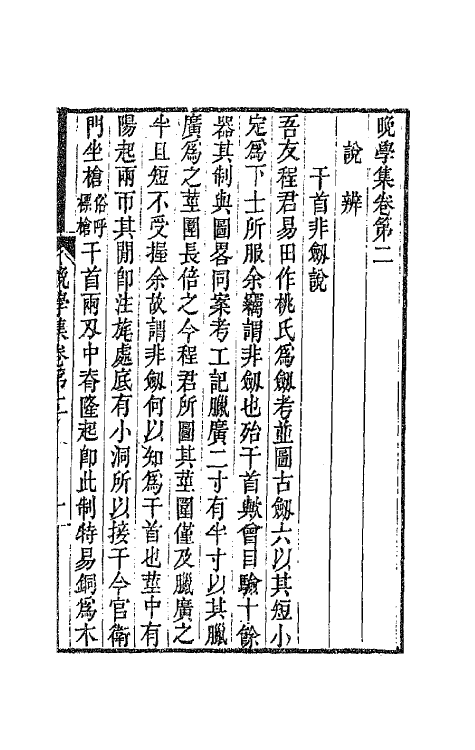 晚學集卷第二
說辨
干首非劔說
吾友程君易田作桃氏爲劔考並圖古劔六以其短小
定爲下士所服余竊謂非劔也殆干首歟曾目驗十餘
器其制與圖畧同案考工記臘廣二寸有半寸以其臘
廣爲之莖圍長倍之今程君所圖其莖圍僅及臘廣之
半且短不受握余故謂非劔何以知爲干首也莖中有
陽起兩帀其閒卽注旄處底有小洞所以接干今官衛
門坐槍俗呼標槍干首兩刄中脊隆起卽此制特易銅爲木
晚學集卷第二